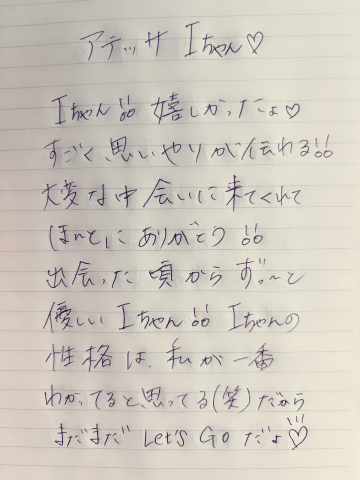 アテッサ Iちゃん♡
Iちゃん!! 嬉しかったよ♡
すごく、思いやりが伝わる!!
大変な中 会いに来てくれて
ほんとにありがとう!!
出会った頃からず〜っと
優しいIちゃん!! Iちゃんの
性格は、私が一番
わかってると思ってる(笑)だから
まだまだ Let's Go だよ♡